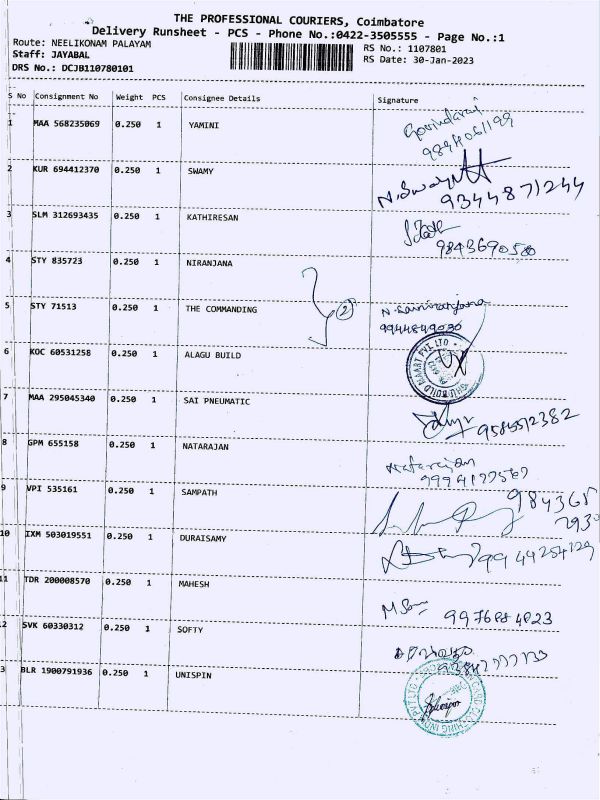 THE PROFESSIONAL COURIERS, Coimbatore
Delivery Runsheet - PCS - Phone No.:0422-3505555 - Page No.:1
Route: NEELIKONAM PALAYAM
RS No.: 1107801
Staff: JAYABAL
RS Date: 30-Jan-2023
DRS No.: DCJB110780101
S No Consignment No Weight PCS Consignee Details Signature
1 MAA 568235069 0.250 1 YAMINI Govindaraj
2 KUR 694412370 0.250 1 SWAMY N.Swamy
9344871244
3 SLM 312693435 0.250 1 KATHIRESAN
9843690580
4 STY 835723 0.250 1 NIRANJANA
5 STY 71513 0.250 1 THE COMMANDING
2
9944849030
6 KOC 60531258 0.250 1 ALAGU BUILD
BUILD MAART PVT LTD
7 MAA 295045340 0.250 1 SAI PNEUMATIC
9585512382
8 GPM 655158 0.250 1 NATARAJAN Natarajan
9 VPI 535161 0.250 1 SAMPATH
10 IXM 503019551 0.250 1 DURAISAMY
11 TDR 200008570 0.250 1 MAHESH
12 SVK 60330312 0.250 1 SOFTY
13 BLR 1900791936 0.250 1 UNISPIN